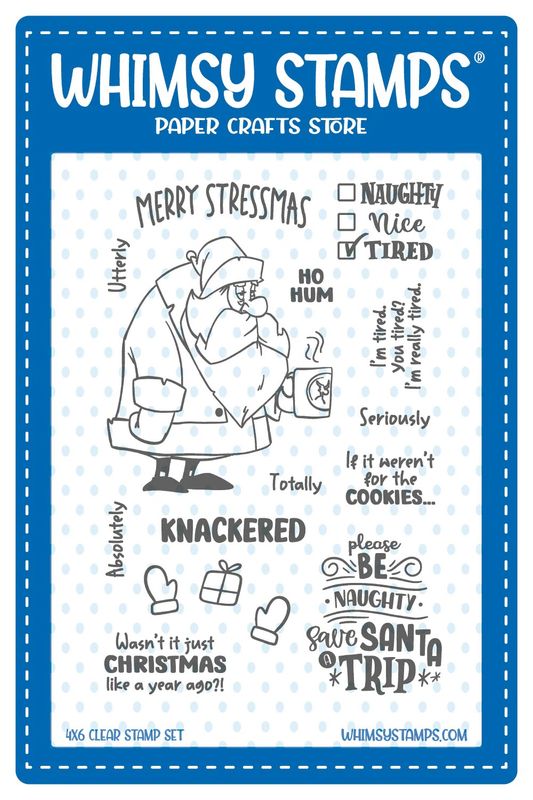 WHIMSY STAMPS®
PAPER CRAFTS STORE
MERRY STRESSMAS
NAUGHTY
Nice
TIRED
Utterly
HO
HUM
I'm tired.
You tired?
I'm really tired.
Seriously
If it weren't
for the
COOKIES...
Totally
Absolutely
KNACKERED
please
BE
NAUGHTY
save SANTA
A TRIP
Wasn't it just
CHRISTMAS
like a year ago?!
4X6 CLEAR STAMP SET
WHIMSYSTAMPS.COM